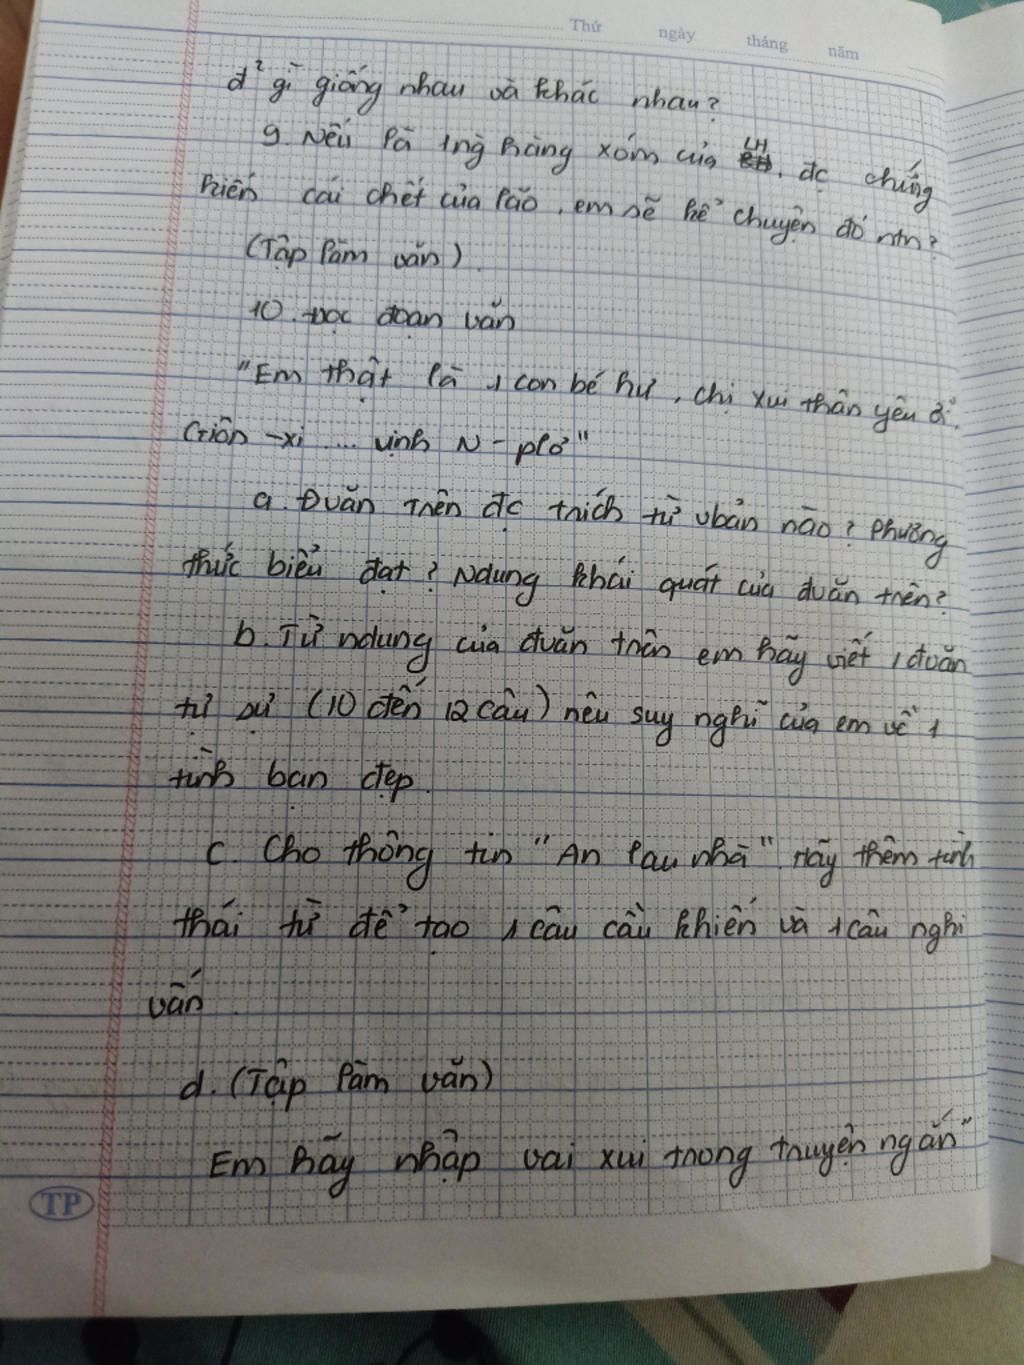 Thứ ngày tháng năm
đ² gì giống nhau và khác nhau?
9. Nếu là 1ng hàng xóm của LH, đc chứng
kiến cái chết của lão, em sẽ kể chuyện đó ntn?
(Tập làm văn)
10. Đọc đoạn văn
"Em thật là 1 con bé hư, chị xui thân yêu ơi,
Giôn-xi ... vịnh N-plơ"
a. Đvăn trên đc trích từ vbản nào? Phương
thức biểu đạt? Ndung khái quát của đvăn trên?
b. Từ ndung của đvăn trên em hãy viết 1 đvăn
tự sự (10 đến 12 câu) nêu suy nghĩ của em về 1
tình bạn đẹp.
c. Cho thông tin "An lau nhà". Hãy thêm tình
thái từ để tạo 1 câu cầu khiến và 1 câu nghi
vấn
d. (Tập làm văn)
Em hãy nhập vai xui trong truyện ngắn"
TP